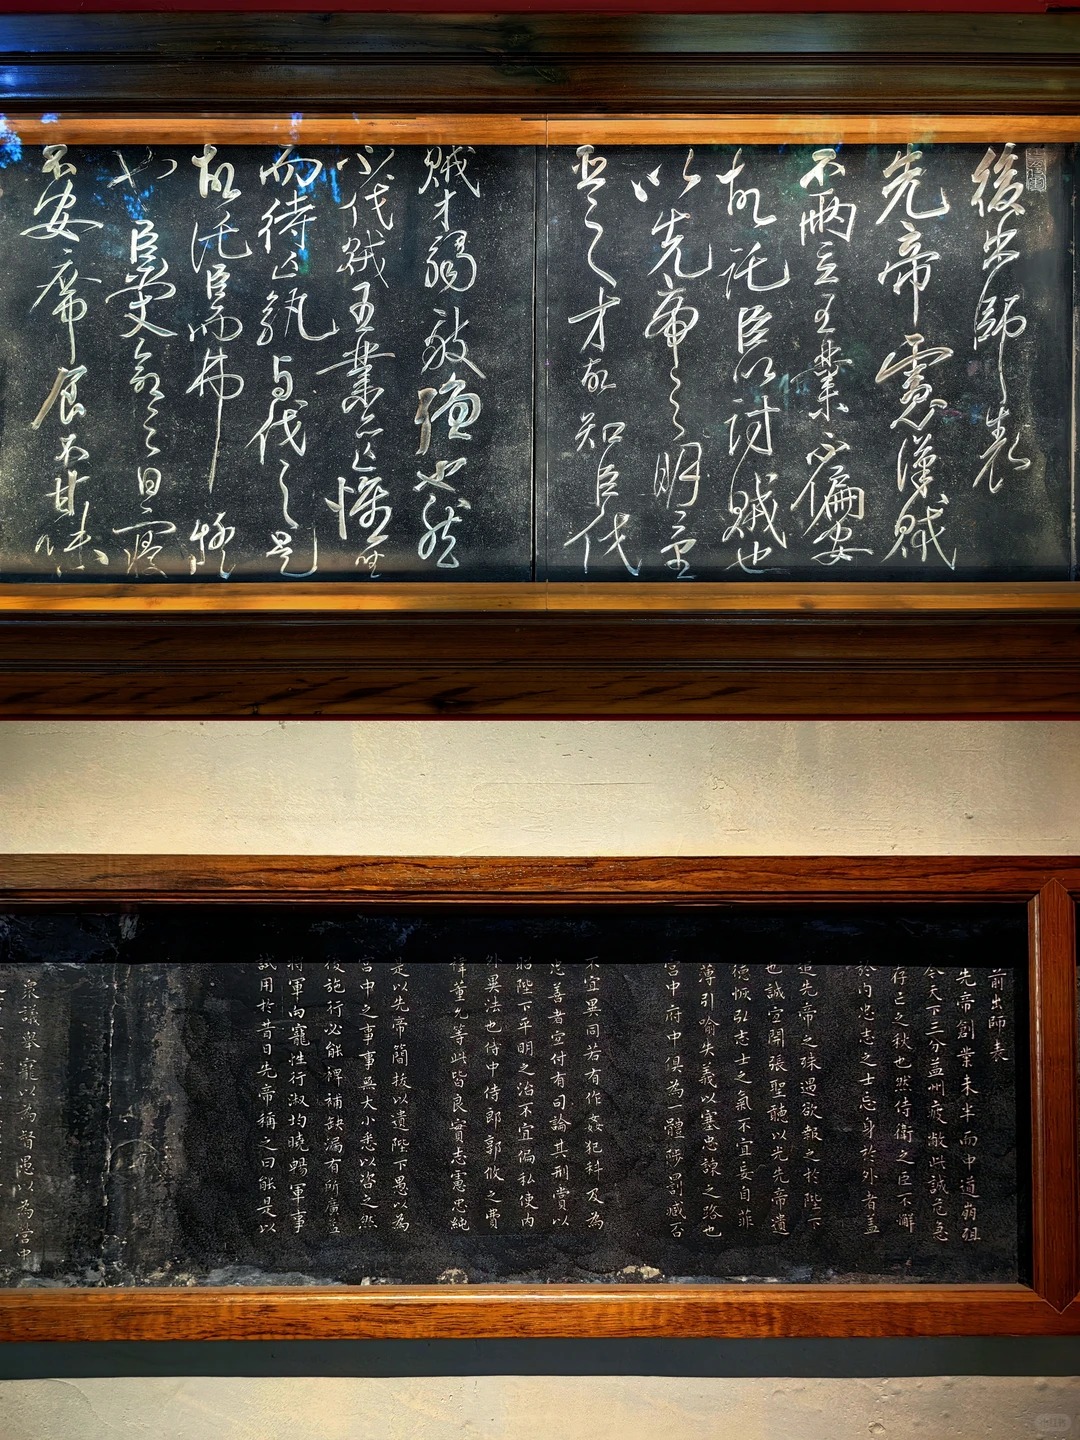 後出師表
先帝慮漢賊
不兩立王業不偏安
故託臣以討賊也
以先帝之明量
臣之才故知臣伐
賊才弱敵強也然
不伐賊王業亦亡惟坐
而待亡孰與伐之是
故託臣而弗疑
也臣受命之日寢
不安席食不甘味
前出師表
先帝創業未半而中道崩殂
今天下三分益州疲敝此誠危急
存亡之秋也然侍衛之臣不懈
於內忠志之士忘身於外者蓋
追先帝之殊遇欲報之於陛下
也誠宜開張聖聽以光先帝遺
德恢弘志士之氣不宜妄自菲
薄引喻失義以塞忠諫之路也
宮中府中俱為一體陟罰臧否
不宜異同若有作姦犯科及為
忠善者宜付有司論其刑賞以
昭陛下平明之治不宜偏私使內
外異法也侍中侍郎郭攸之費
禕董允等此皆良實志慮忠純
是以先帝簡拔以遺陛下愚以為
宮中之事事無大小悉以咨之然
後施行必能裨補缺漏有所廣益
將軍向寵性行淑均曉暢軍事
試用於昔日先帝稱之曰能是以
眾議舉寵以為督愚以為營中